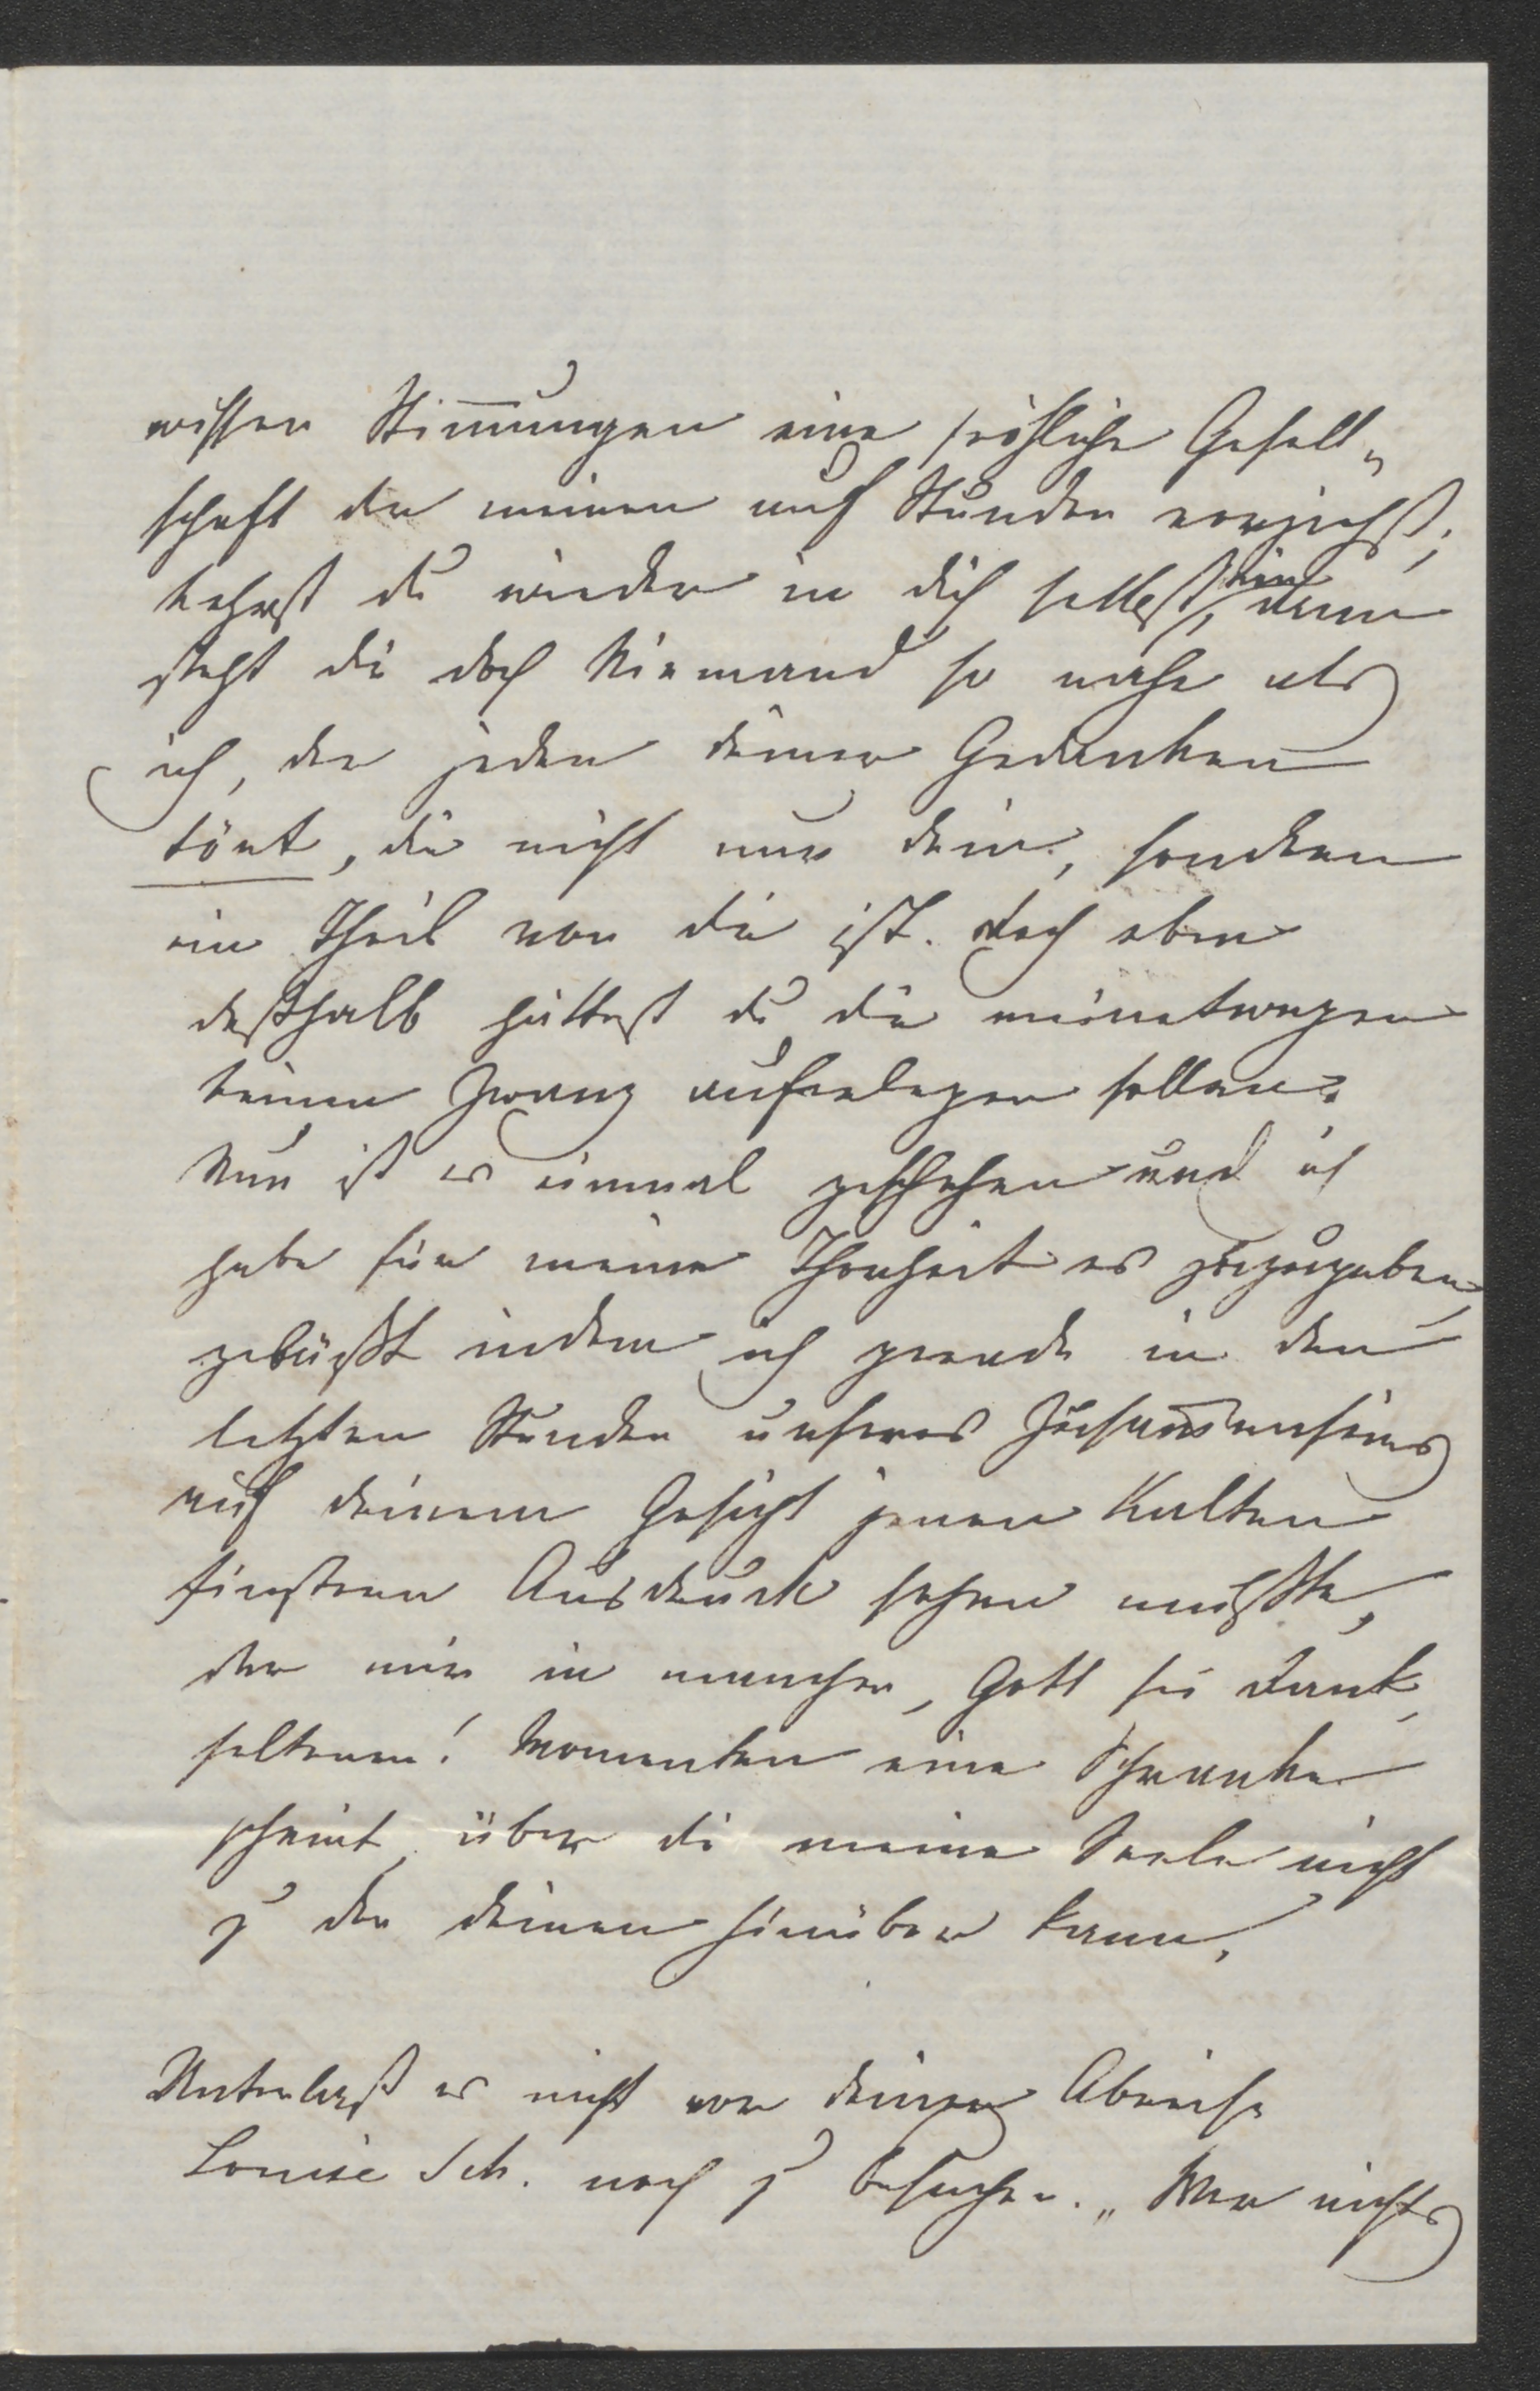 wissen Stim̅ungen eine fröhliche Gesell„
schaft der meinen auf Stunden vorziehst;
kehrst du wieder in dich selbst ein, dann
steht dir doch Niemand so nahe als
ich, der jeden deiner Gedanken
tönt, die nicht nur dein, sondern
ein Theil von dir ist. Doch eben
deßhalb hättest du dir meinetwegen
keinen Zwang auferlegen sollen.
Nun ist es einmal geschehen und ich
habe für meine Thorheit es zuzugeben,
gebüßt indem ich gerade in den
letzten Stunden unseres Zusam̅enseins
auf deinem Gesicht jenen kalten
finstren Ausdruck sehen mußte,
der mir in manchen, Gott sei Dank,
seltenen! Momenten eine Schranke
scheint, über die meine Seele nicht
zu der deinen hinüber kann.
Unterlaß es nicht vor deiner Abreise
Louise Sch. noch zu besuchen. „Wer nichts